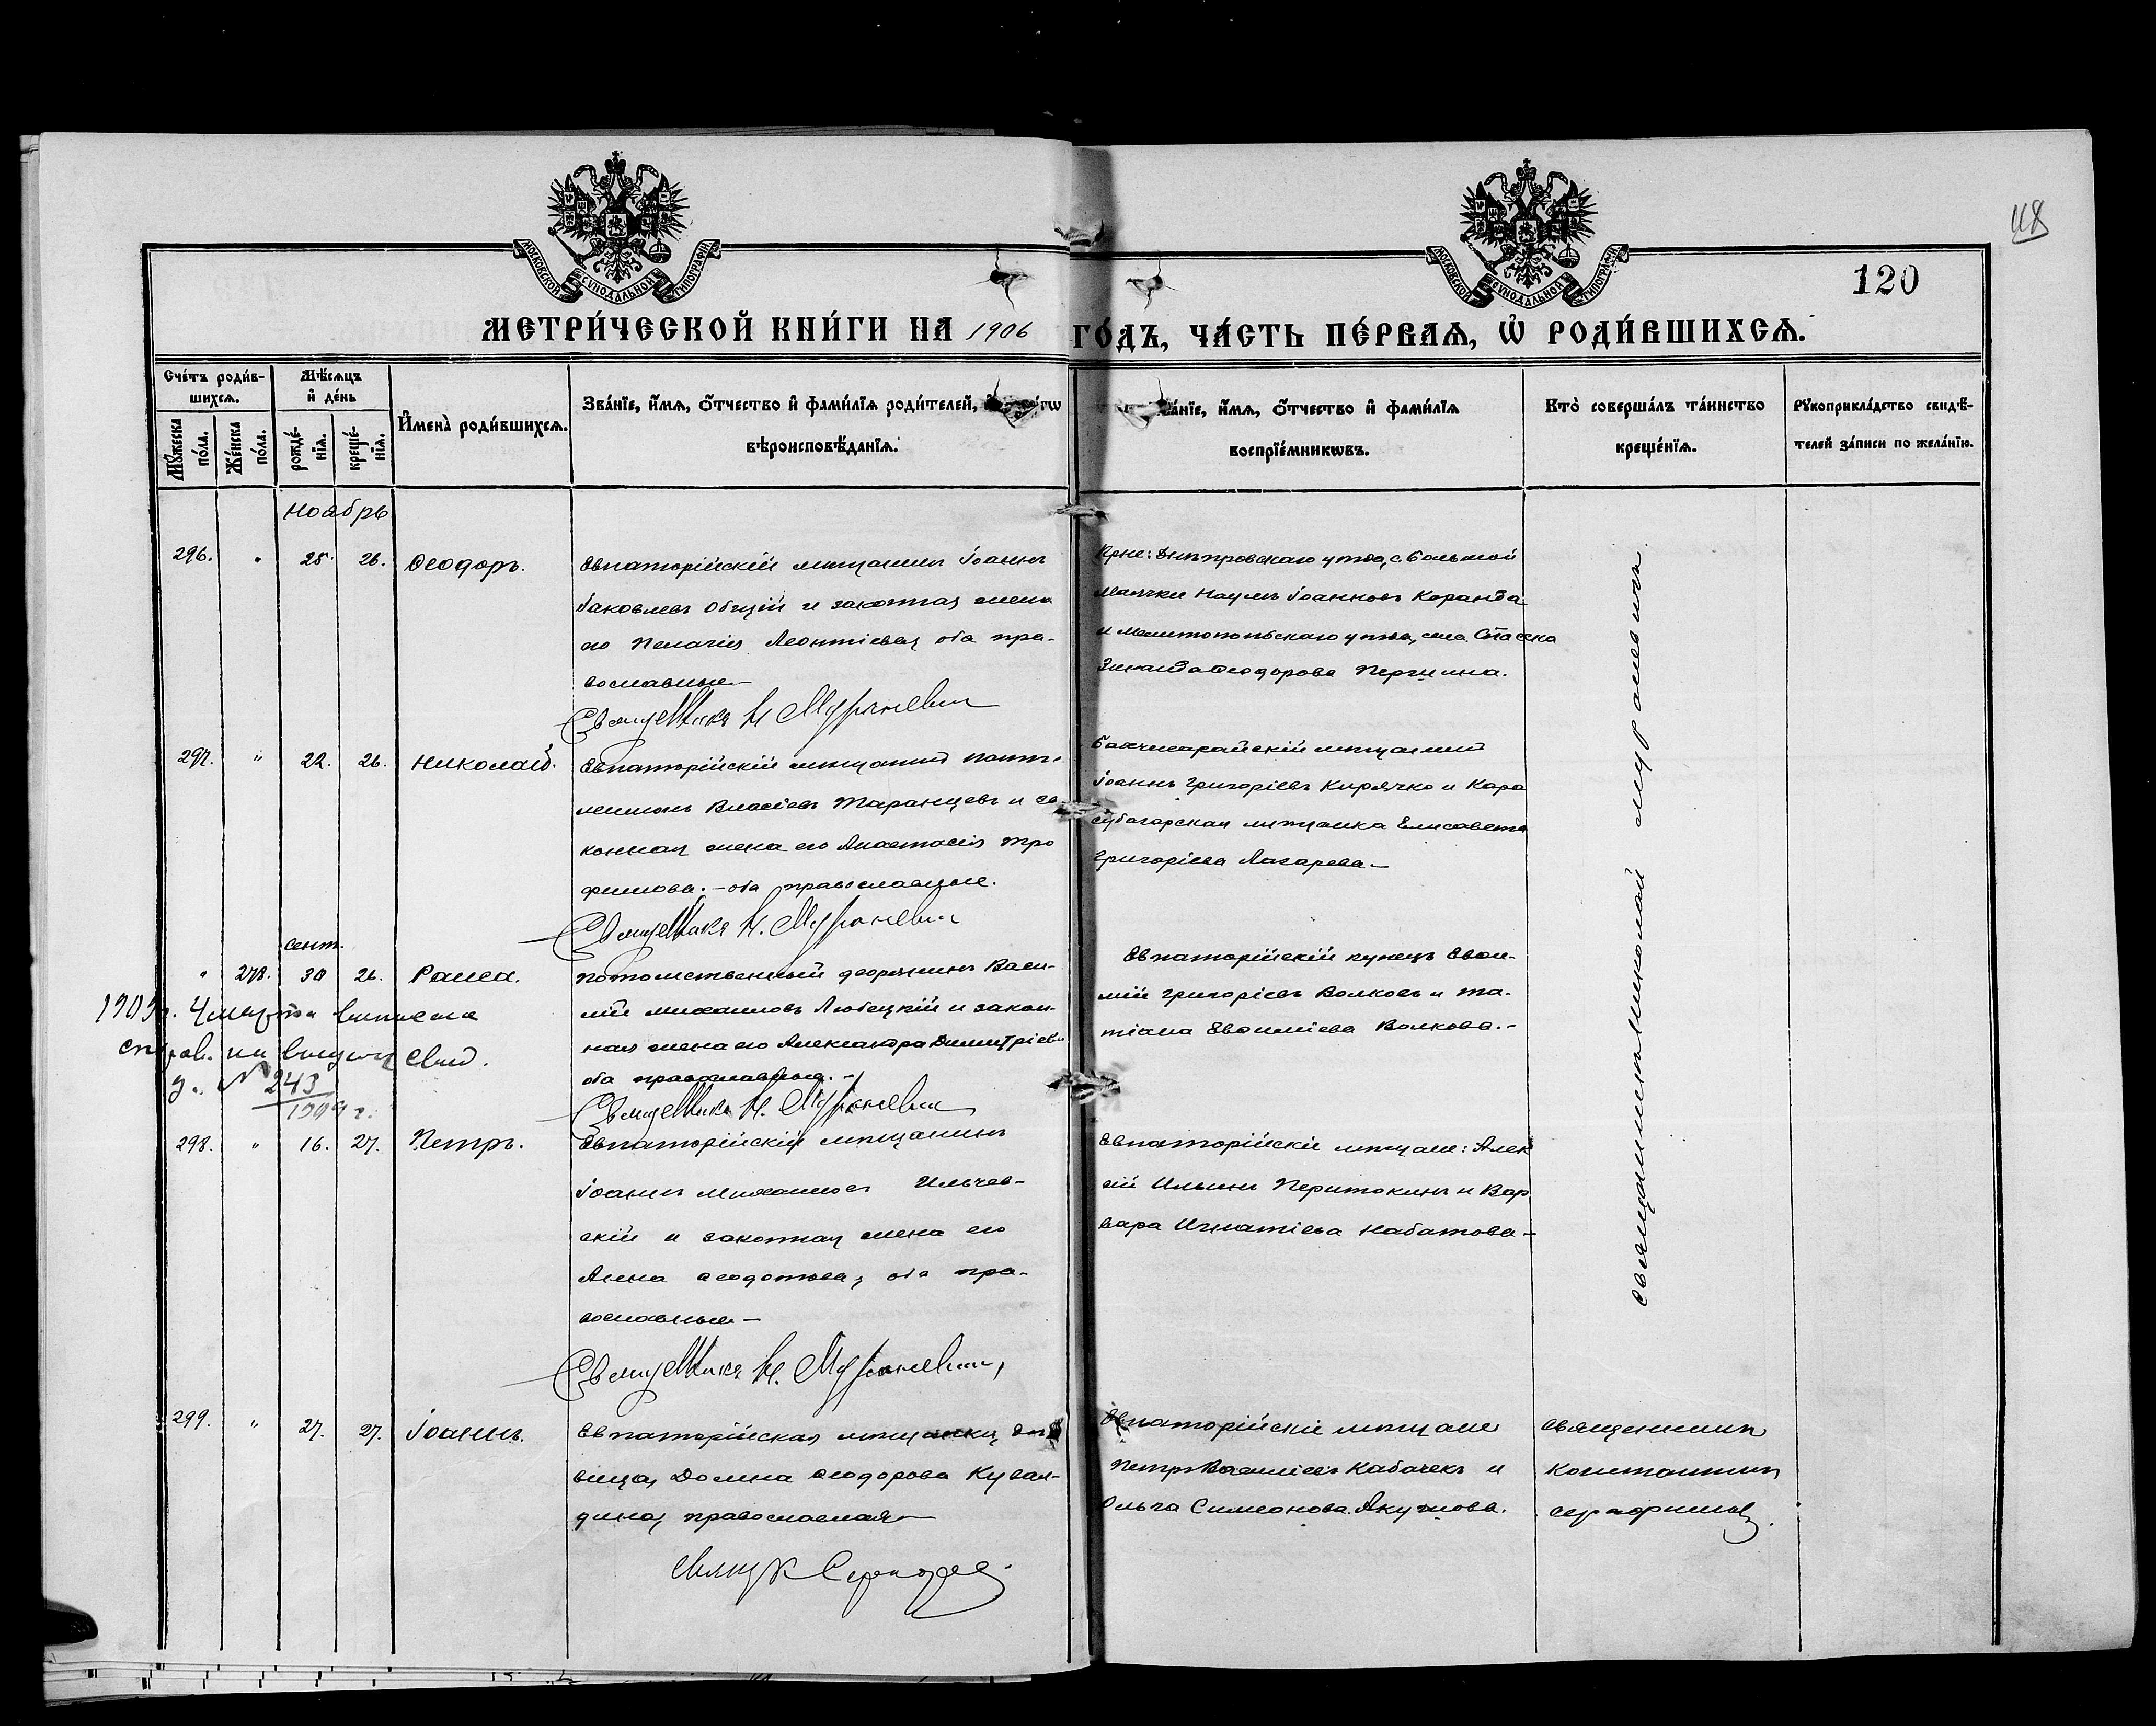 118
120
МОСКОВСКОЙ СѴНОДАЛЬНОЙ ТИПОГРАФІИ
МОСКОВСКОЙ СѴНОДАЛЬНОЙ ТИПОГРАФІИ
МЕТРИ́ЧЕСКОЙ КНИ́ГИ НА 1906 ГО́ДЪ, ЧА́СТЬ ПЕ́РВАѦ, Ѡ҆ РОДИ́ВШИХСѦ.
Сче́тъ роди́в-
шихсѧ.
Мꙋжеска по́ла.
Же́нска по́ла.
Мѣ́сѧцъ
и҆ де́нь
рожде́-
нїѧ.
креще́-
нїѧ.
И҆мена̀ роди́вшихсѧ.
Зва́нїе, и҆́мѧ, ѻ҆́тчество и҆ фами́лїѧ роди́телей,
вѣроисповѣ́данїѧ.
и҆́мѧ, ѻ҆́тчество и҆ фами́лїѧ
воспрїе́мникѡвъ.
Кто̀ соверша́лъ та́инство
креще́нїѧ.
Рꙋкоприкла́дство свидѣ́-
телей за́писи по жела́нїю.
Ноябрь
296. " 25. 26. Ѳеодоръ.
Евпаторійскій мѣщанинъ Іоаннъ
Іаковлевъ Общій и законная жена
его Пелагія Леонтіева, оба пра-
вославные.—
Священникъ Н. Мураневич
Крне: Днѣпровскаго уѣзда, с. Большой
Маячки Наумъ Іоанновъ Каранда
и Мелитопольскаго уѣзда, села Спасска
Зинаида Ѳеодорова
297. " 22. 26. Николай.
Евпаторійскій мѣщанинъ Панте-
леимонъ Власіевъ Таранцевъ и за-
конная жена его Анастасія Тро
фимова.— оба православные.
Священникъ Н. Мураневич
Бахчисарайскій мѣщанинъ
Іоаннъ Григоріевъ Кирячко и Кара
субазарская мѣщанка Елисавета
Григоріева Лазарева—
сент.
" 278. 30 26. Раиса.
Потомственный дворянинъ Васи-
лій Михаиловъ Любецкій и закон-
ная жена его Александра Димитріев
оба православные.—
Священникъ Н. Мураневич
Евпаторійскій купецъ Евѳи-
мій Григоріевъ Волковъ и Та-
тіана Евѳиміева Волкова.—
марта выписана
свид.
№ 243
1909 г.
298. " 16. 27. Петръ.
Евпаторійскій мѣщанинъ
Іоаннъ Михаиловъ Ильчев-
скій и законная жена его
Анна Ѳеодотова, оба пра-
вославные—
Священникъ Н. Мураневич
Евпаторійскіе мѣщане: Алек
сій Ильинъ Перитокинъ и Вар
вара Игнатіева Набатова—
священникъ Николай Мураневичъ
299. " 27. 27. Іоаннъ.
Евпаторійская мѣщанка, дѣ
вица, Домна Ѳеодорова Кувал-
дина, православная—
Свящ К Серафимов
Евпаторійскіе мѣщане
Петръ Василіевъ Кабачекъ и
Ольга Симеонова Акулова.
священникъ
Константинъ
Серафимовъ.